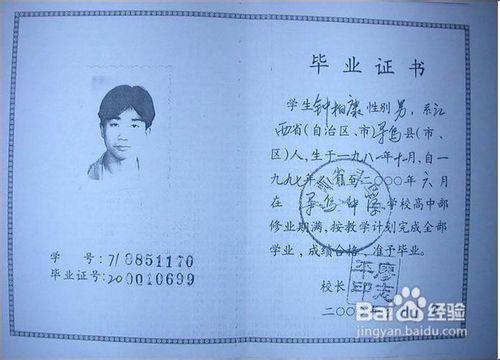 学　号：7/9851170
毕业证号：200010699
毕业证书
学生钟柏康性别男，系江
西省（自治区、市）寻乌县（市、
区）人，生于一九八一年十月，自
一九九七年八月至二〇〇〇年六月
在寻乌中学学校高中部
修业期满，按教学计划完成全部
学业，成绩合格，准予毕业。
校长
二〇〇
Baidu经验
jingyan.baidu.com